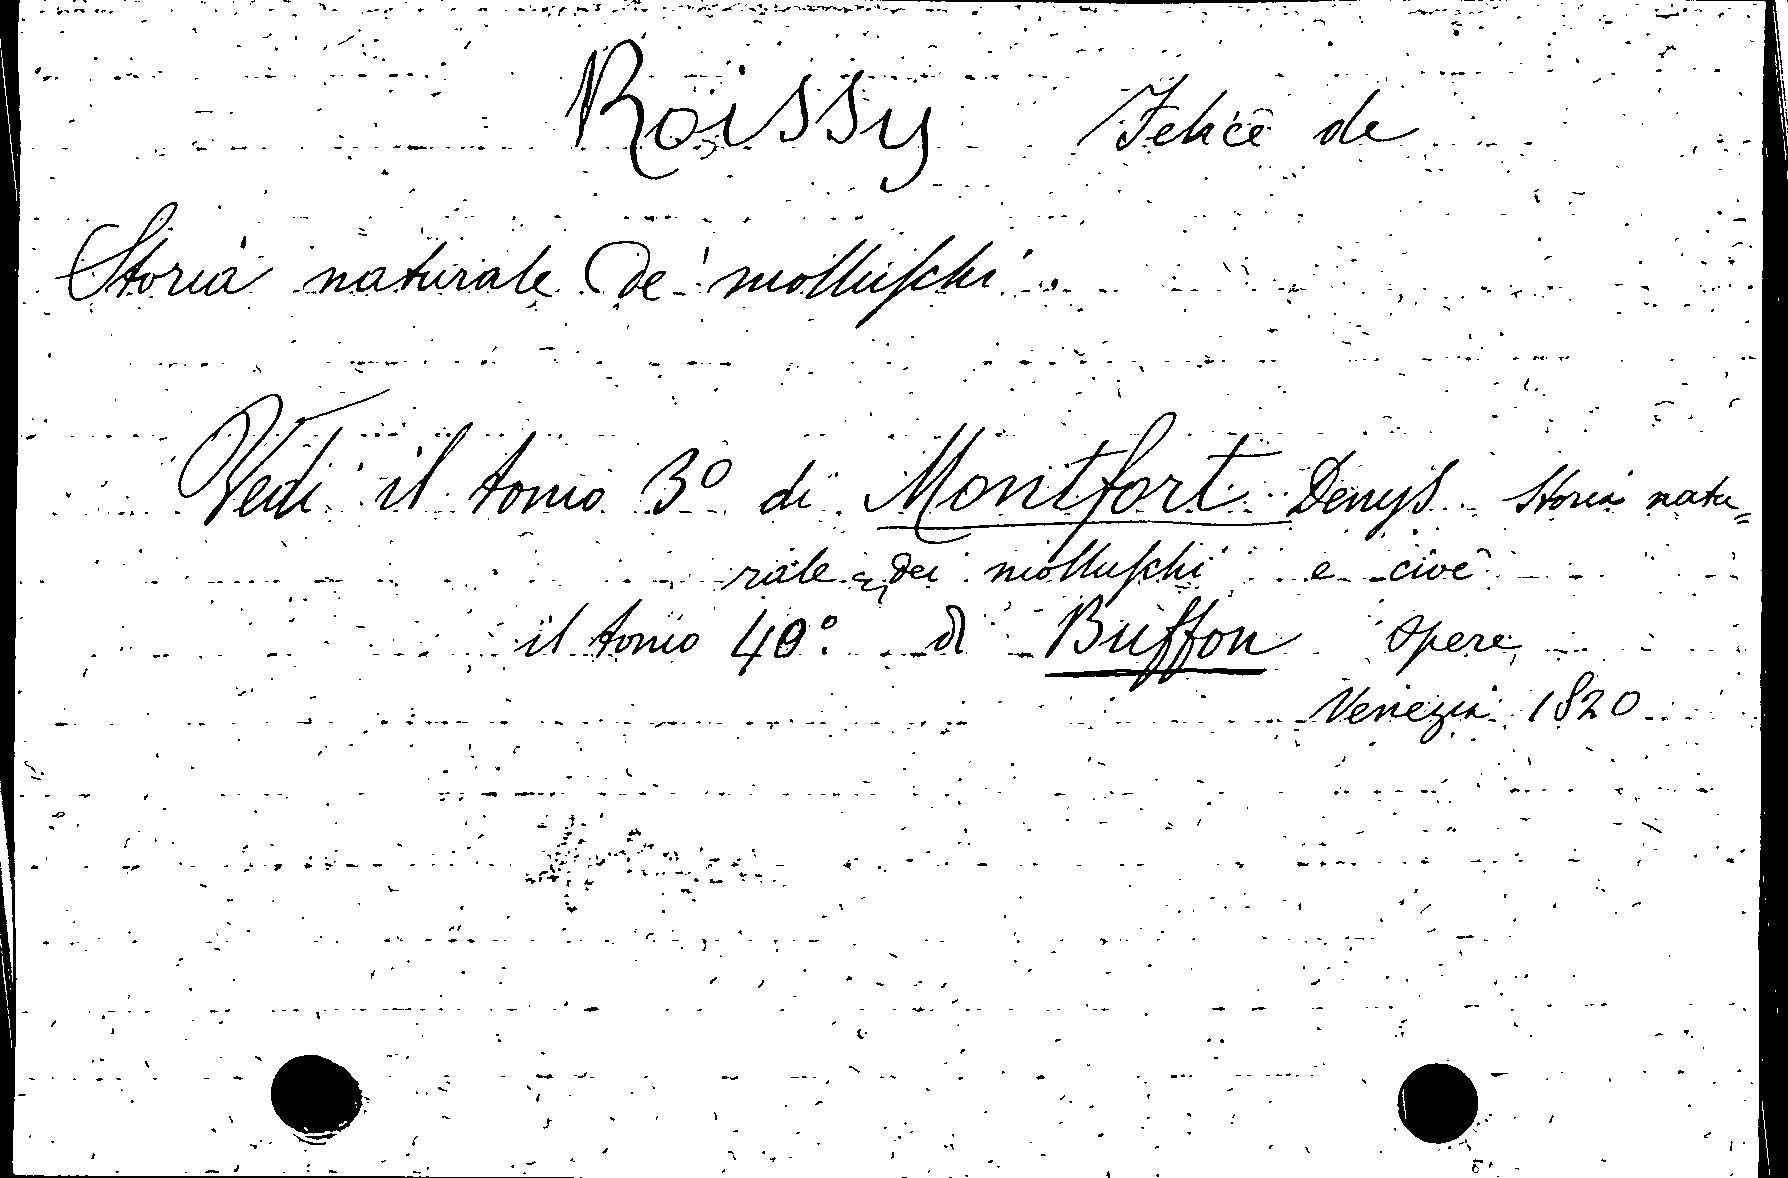 Roissy Felice de
Storia naturale de' molluschi
Vedi il tomo 3º di Montfort Denys Storia natu=
rale dei molluschi e cioè
il tomo 40º di Buffon Opere
Venezia 1820